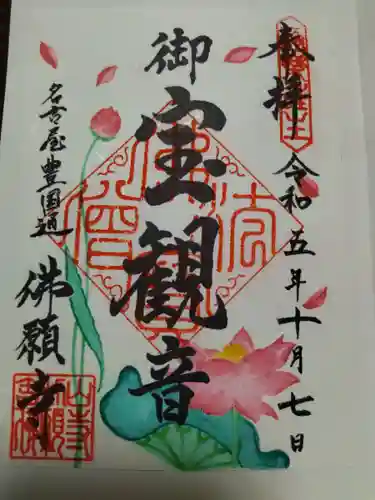 奉拝
令和五年十月七日
御宝観音
名古屋豊国通
佛願寺